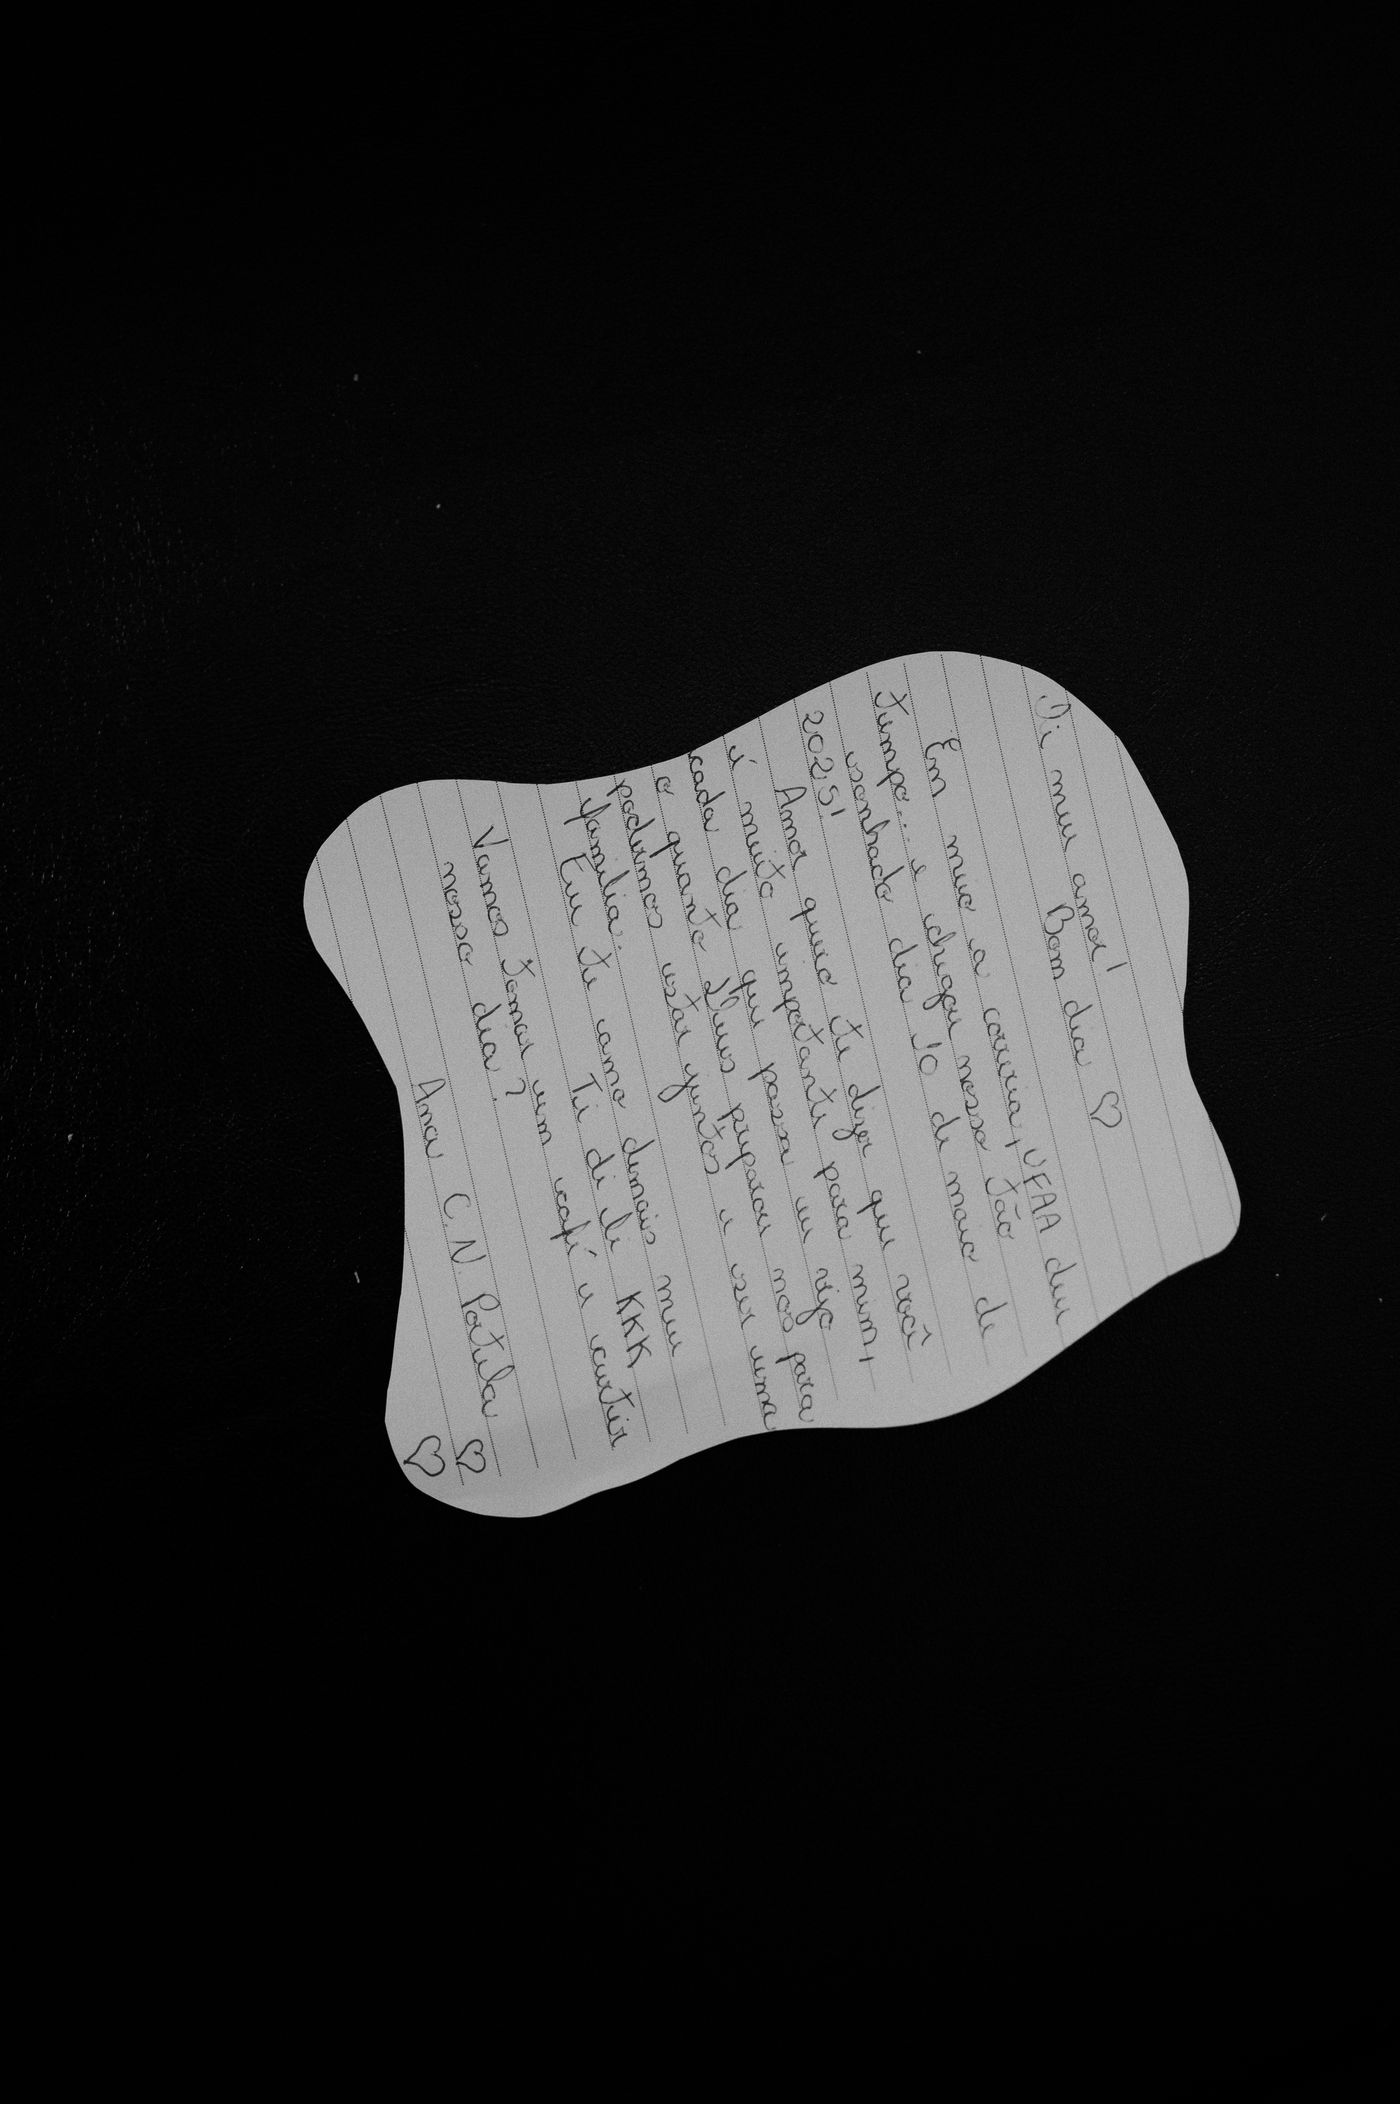 Oi meu amor!
Bom dia ♡
Em meio a correria, UFAA deu
tempo... e chegou nosso tão
sonhado dia 10 de maio de
2025!
Amor quero te dizer que você
é muito importante para mim,
cada dia que passa eu vejo
o quanto Deus preparou nos para
podermos estar juntos e ser uma
família.
Eu te amo demais meu
Ti di li KKK
Vamos tomar um café e curtir
nosso dia?
Ana C. N. Portela
♡ ♡